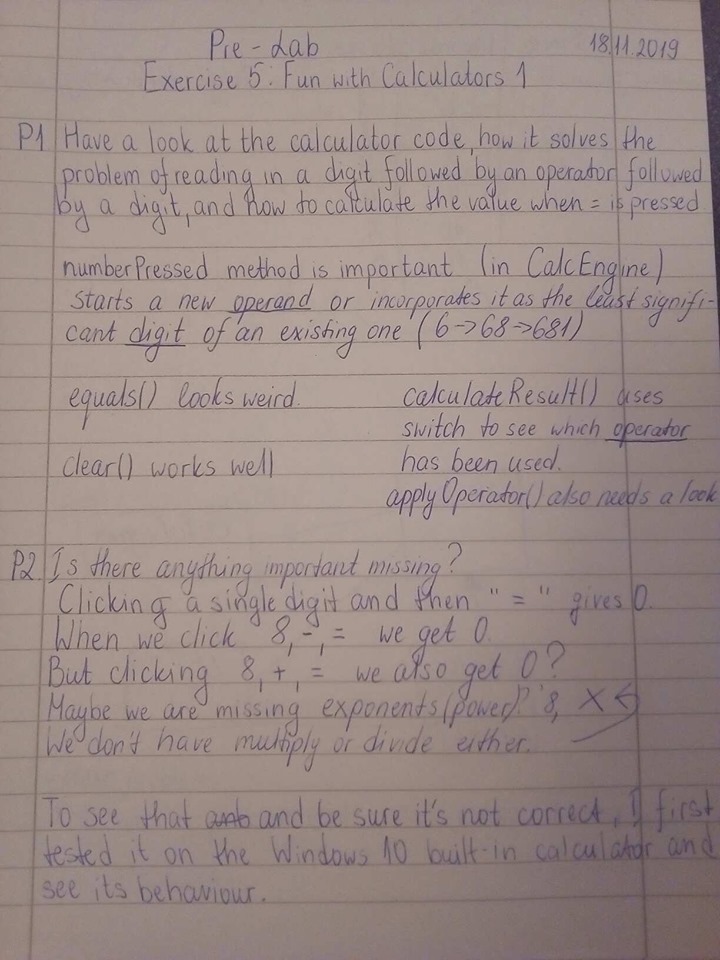 Pre-Lab 18.11.2019
Exercise 5: Fun with Calculators 1
P1 Have a look at the calculator code, how it solves the
problem of reading in a digit followed by an operator followed
by a digit, and how to calculate the value when = is pressed
numberPressed method is important (in CalcEngine)
Starts a new operand or incorporates it as the least signifi-
cant digit of an existing one (6->68->681)
equals() looks weird. calculateResult() uses
switch to see which operator
clear() works well has been used.
applyOperator() also needs a look
P2 Is there anything important missing?
Clicking a single digit and then "=" gives 0.
When we click 8, -, = we get 0.
But clicking 8, +, = we also get 0?
Maybe we are missing exponents (power)? 8, X
We don't have multiply or divide either.
To see that and be sure it's not correct, I first
tested it on the Windows 10 built-in calculator and
see its behaviour.